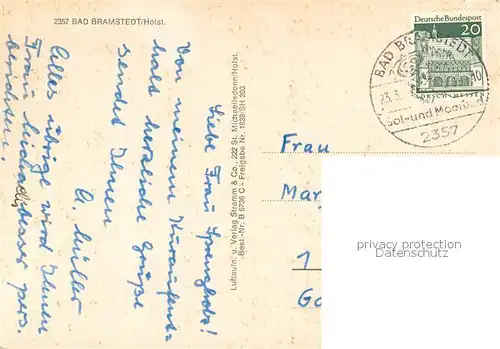 2357 BAD BRAMSTEDT/Holst.
Liebe Frau
Von meinem Kuraufent-
halt herzliche Grüße
sendet Ihnen
A. Müller
Alles übrige wird Ihnen
Frau besser pers.
berichten.
Luftaufn. u. Verlag Stramm & Co., 222 St. Michaelisdonn/Holst.
Best.-Nr. B 6736 C - Freigabe Nr. 1639/SH 263
Deutsche Bundespost
20
BAD BRAMSTEDT
23.3.
Sol- und Moor
2357
Frau
Mar
1
Go
privacy protection
Datenschutz